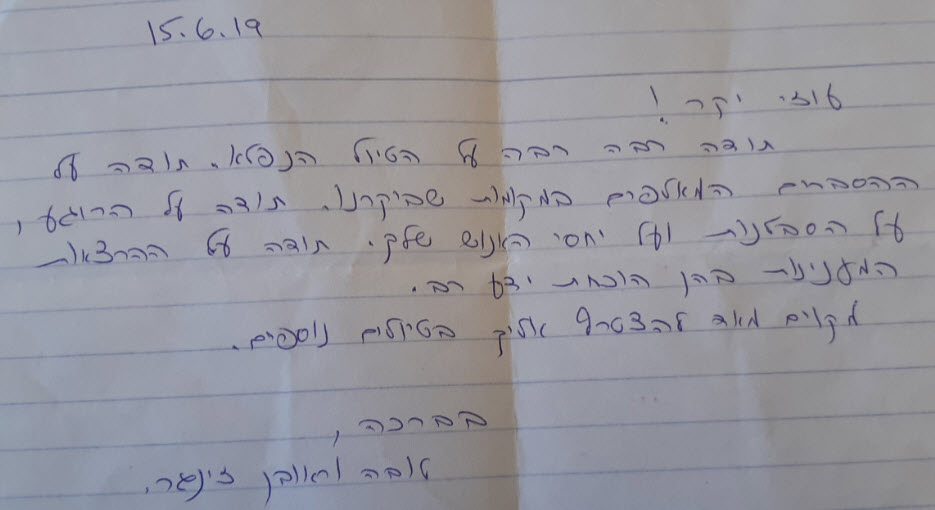 15.6.19
עוזי יקר!
תודה רבה רבה על הטיול הנפלא. תודה על
ההסברים המאלפים במקומות שביקרנו. תודה על הרוגע,
על הסבלנות ועל יחסי האנוש שלך. תודה על ההרצאות
המעניינות בהן הוכחת ידע רב.
מקוים מאד להצטרף אליך בטיולים נוספים.
בברכה,
טובה וראובן